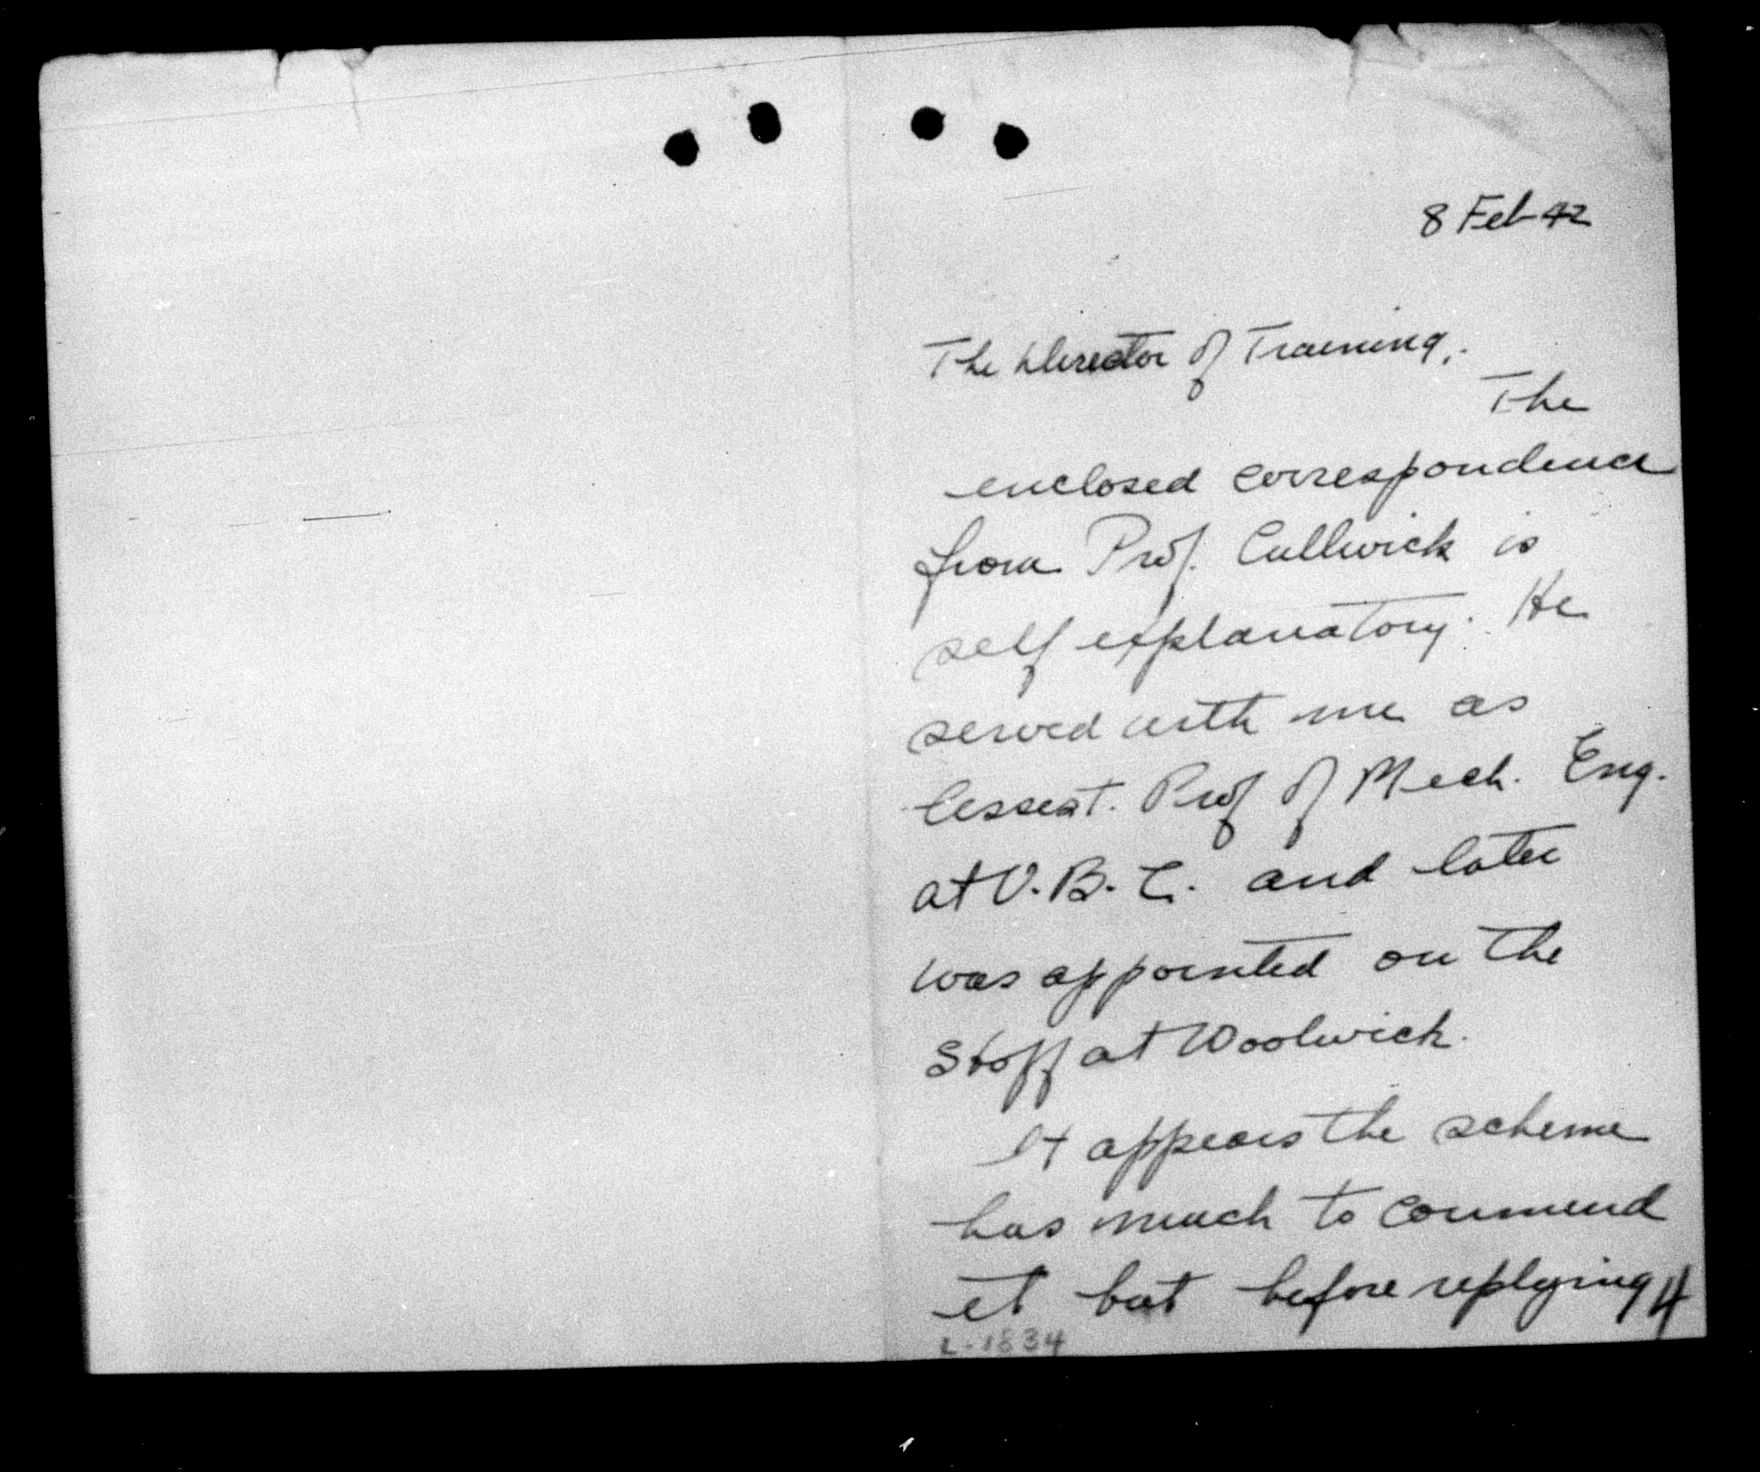 8 Feb 42
The Director of Training,
The
enclosed correspondence
from Prof. Cullwick is
self explanatory. He
served with me as
Assist. Prof of Mech. Eng.
at U.B.C. and later
was appointed on the
Staff at Woolwich.
It appears the scheme
has much to commend
it but before replying
4
L-1834